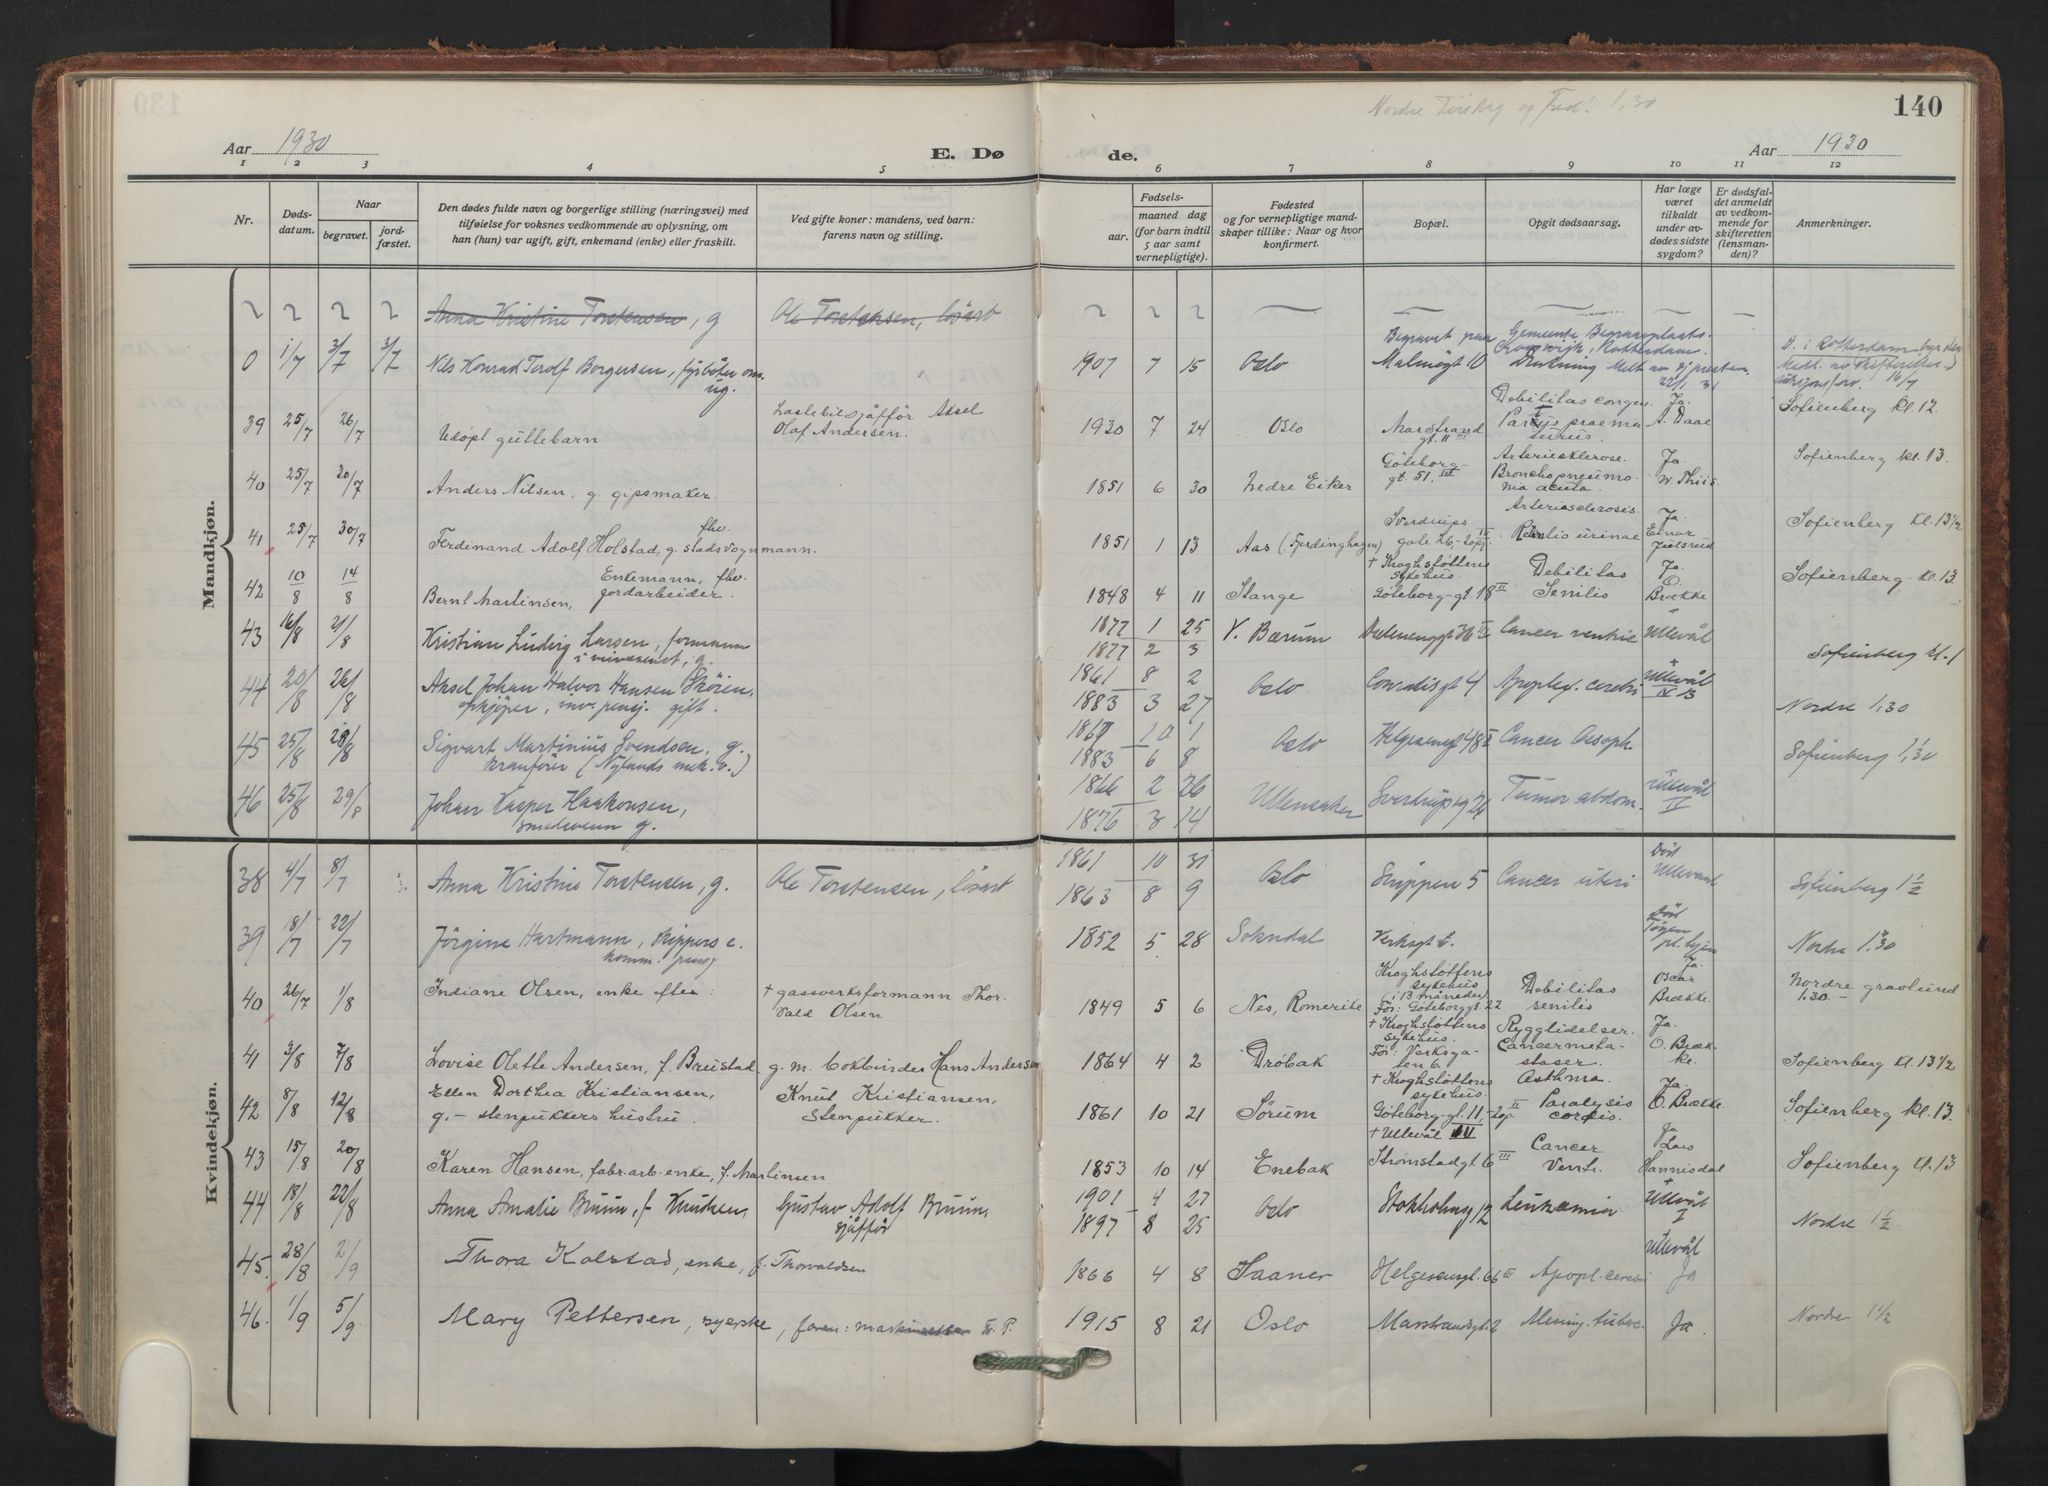 139
140
Nordre
Aar 1930
E. Dø
de.
Aar 1930
1 2 3 4 5 6 7 8 9 10 11 12
Nr.
Dødsdatum.
Naar
begravet.
jordfæstet.
Den dødes fulde navn og borgerlige stilling (næringsvei) med
tilføielse for voksnes vedkommende av oplysning, om
han (hun) var ugift, gift, enkemand (enke) eller fraskilt.
Ved gifte koner: mandens, ved barn:
farens navn og stilling.
Fødsels-
aar.
maaned dag
(for barn indtil
5 aar samt
vernepligtige).
Fødested
og for vernepligtige mand-
skaper tillike: Naar og hvor
konfirmert.
Bopæl.
Opgit dødsaarsag.
Har læge
været
tilkaldt
under av-
dødes sidste
sygdom?
Er dødsfal-
det anmeldt
av vedkom-
mende for
skifteretten
(lensman-
den)?
Anmerkninger.
Mandkjøn.
Anna Kristine Torstensen, g Ole Torstensen, løsarb
Begravet paa Gemeente Begraafplaats
Crooswijk, Rotterdam
0 1/7 3/7 3/7 Nils Konrad Terolf Borgersen, fyrbøter
ug.
1907 7 15 Oslo Malmøgt 10 Drukning
39 25/7 26/7 Udøpt guttebarn Lastebilsjåfför Aksel
Olaf Andersen.
1930 7 24 Oslo Marstrand
gt. 11 III Debilitas congen.
Partus praema
turus. Ja.
A. Daae Sofienberg kl. 12
40 25/7 Anders Nilsen, g. gipsmaker. 1851 6 30 Nedre Eiker Göteborg-
gt. 51. III Arteriesklerose.
Bronchopneumo
nia acuta. Ja.
W. Thiis Sofienberg kl. 13.
41 25/7 30/7 Ferdinand Adolf Holstad, g. fhv. stadsvognmann. 1851 1 13 Aas (Fjerdinghagen) Sverdrups
gate 26, IV Arteriosclerosis.
urinae Ja.
Einar
Julsrud Sofienberg kl. 13 1/2
42 10/8 14/8 Bernt Martinsen, Enkemann, fhv.
jordarbeider. 1848 4 11 Stange + Kroghstøttens
sykehus.
Göteborg-gt. 18 II Debilitas
Senilis Ja.
O.
Brække Sofienberg kl. 13
43 16/8 21/8 Kristian Ludvig Larsen, formann
g. 1877 1 25
1877 2 3 V. Bærum Cancer ventric Ullevål Sofienberg kl. 1
44 26/8 Aksel Johan Halvor Hansen Skøien,
inv. pensj. gift. 1861 8 2
1883 3 27 Oslo Conradisgt 4 Apoplex. cerebri + Ullevål
IV B Nordre 1,30
45 25/8 Sigvart Martinius Svendsen, g.
kranfører (Nylands mek. v.) 10 1
1883 6 8 Oslo Helgesensgt 48 Cancer Oesoph. Sofienberg 1,30
46 25/8 29/8 Johan Kasper Haakonsen,
smedsvenn g. 1866 2 26
1876 3 14 Ullensaker Tumor abdom. Ullevål
IV
Kvindekjøn.
38 4/7 8/7 Anna Kristine Torstensen, g. Ole Torstensen, løsarb 1861 10 31
1863 8 9 Oslo Skippergt 5 Cancer uteri Død
Ullevaal Sofienberg 1 1/2
39 18/7 22/7 Jörgine Hartmann, skippers e.
komm. pensj 1852 5 28 Sokndal Verksgt 6. Død Nordre 1.30
40 26/7 1/8 Indiane Olsen, enke efter: + gassverksformann Thor-
vald Olsen 1849 5 6 Nes, Romerike Kroghstøttens
sykehus
i 13 måneder
Før: Göteborggt. 22 Debilitas
senilis Ja.
Brække Nordre gravlund
1.30 -
41 3/8 7/8 Lovise Olette Andersen, f. Brustad, g. m. bokbinder Hans Andersen 1864 4 2 Drøbak + Kroghstøttens
sykehus.
Før: Verksga-
ten 6. Rygglidelser.
Cancermeta-
staser. Ja.
O. Bræk-
ke. Sofienberg kl. 13 1/2
42 8/8 12/8 Ellen Dorthea Kristiansen,
g. - stenpukkers hustru. Knut Kristiansen,
stenpukker. 1861 10 21 Sørum + Kroghstøttens
sykehus.
Göteborg-gt. 11, Asthma.
Paralysis
cordis. Ja.
O. Brække. Sofienberg kl. 13.
43 15/8 20/8 Karen Hansen, fabr.arb. enke, f. Martinsen 1853 10 14 Enebak + Ullevål
Strömstadgt 6 III Cancer
Ventr. Ja
Lars
Hannisdal Sofienberg kl. 13
44 18/8 22/8 Anna Amalie Bruun, f. Knudsen Gustav Adolf Bruun,
sjåfför 1901 4 27
1897 8 25 Oslo Stokholmsg 12 Leukæmia + Ullevål
I Nordre 1 1/2
45. 28/8 2/9 Thora Kolstad, enke, f. Thorvaldsen 1866 4 8 Saaner Helgesensgt. 66 III Apopl. cerebri Ullevål
Ja
46. 1/9 5/9 Mary Pettersen, syerske, 1915 8 21 Oslo Marstrandsgt. 2 Mening. tuberc. Ja Nordre 1 1/2